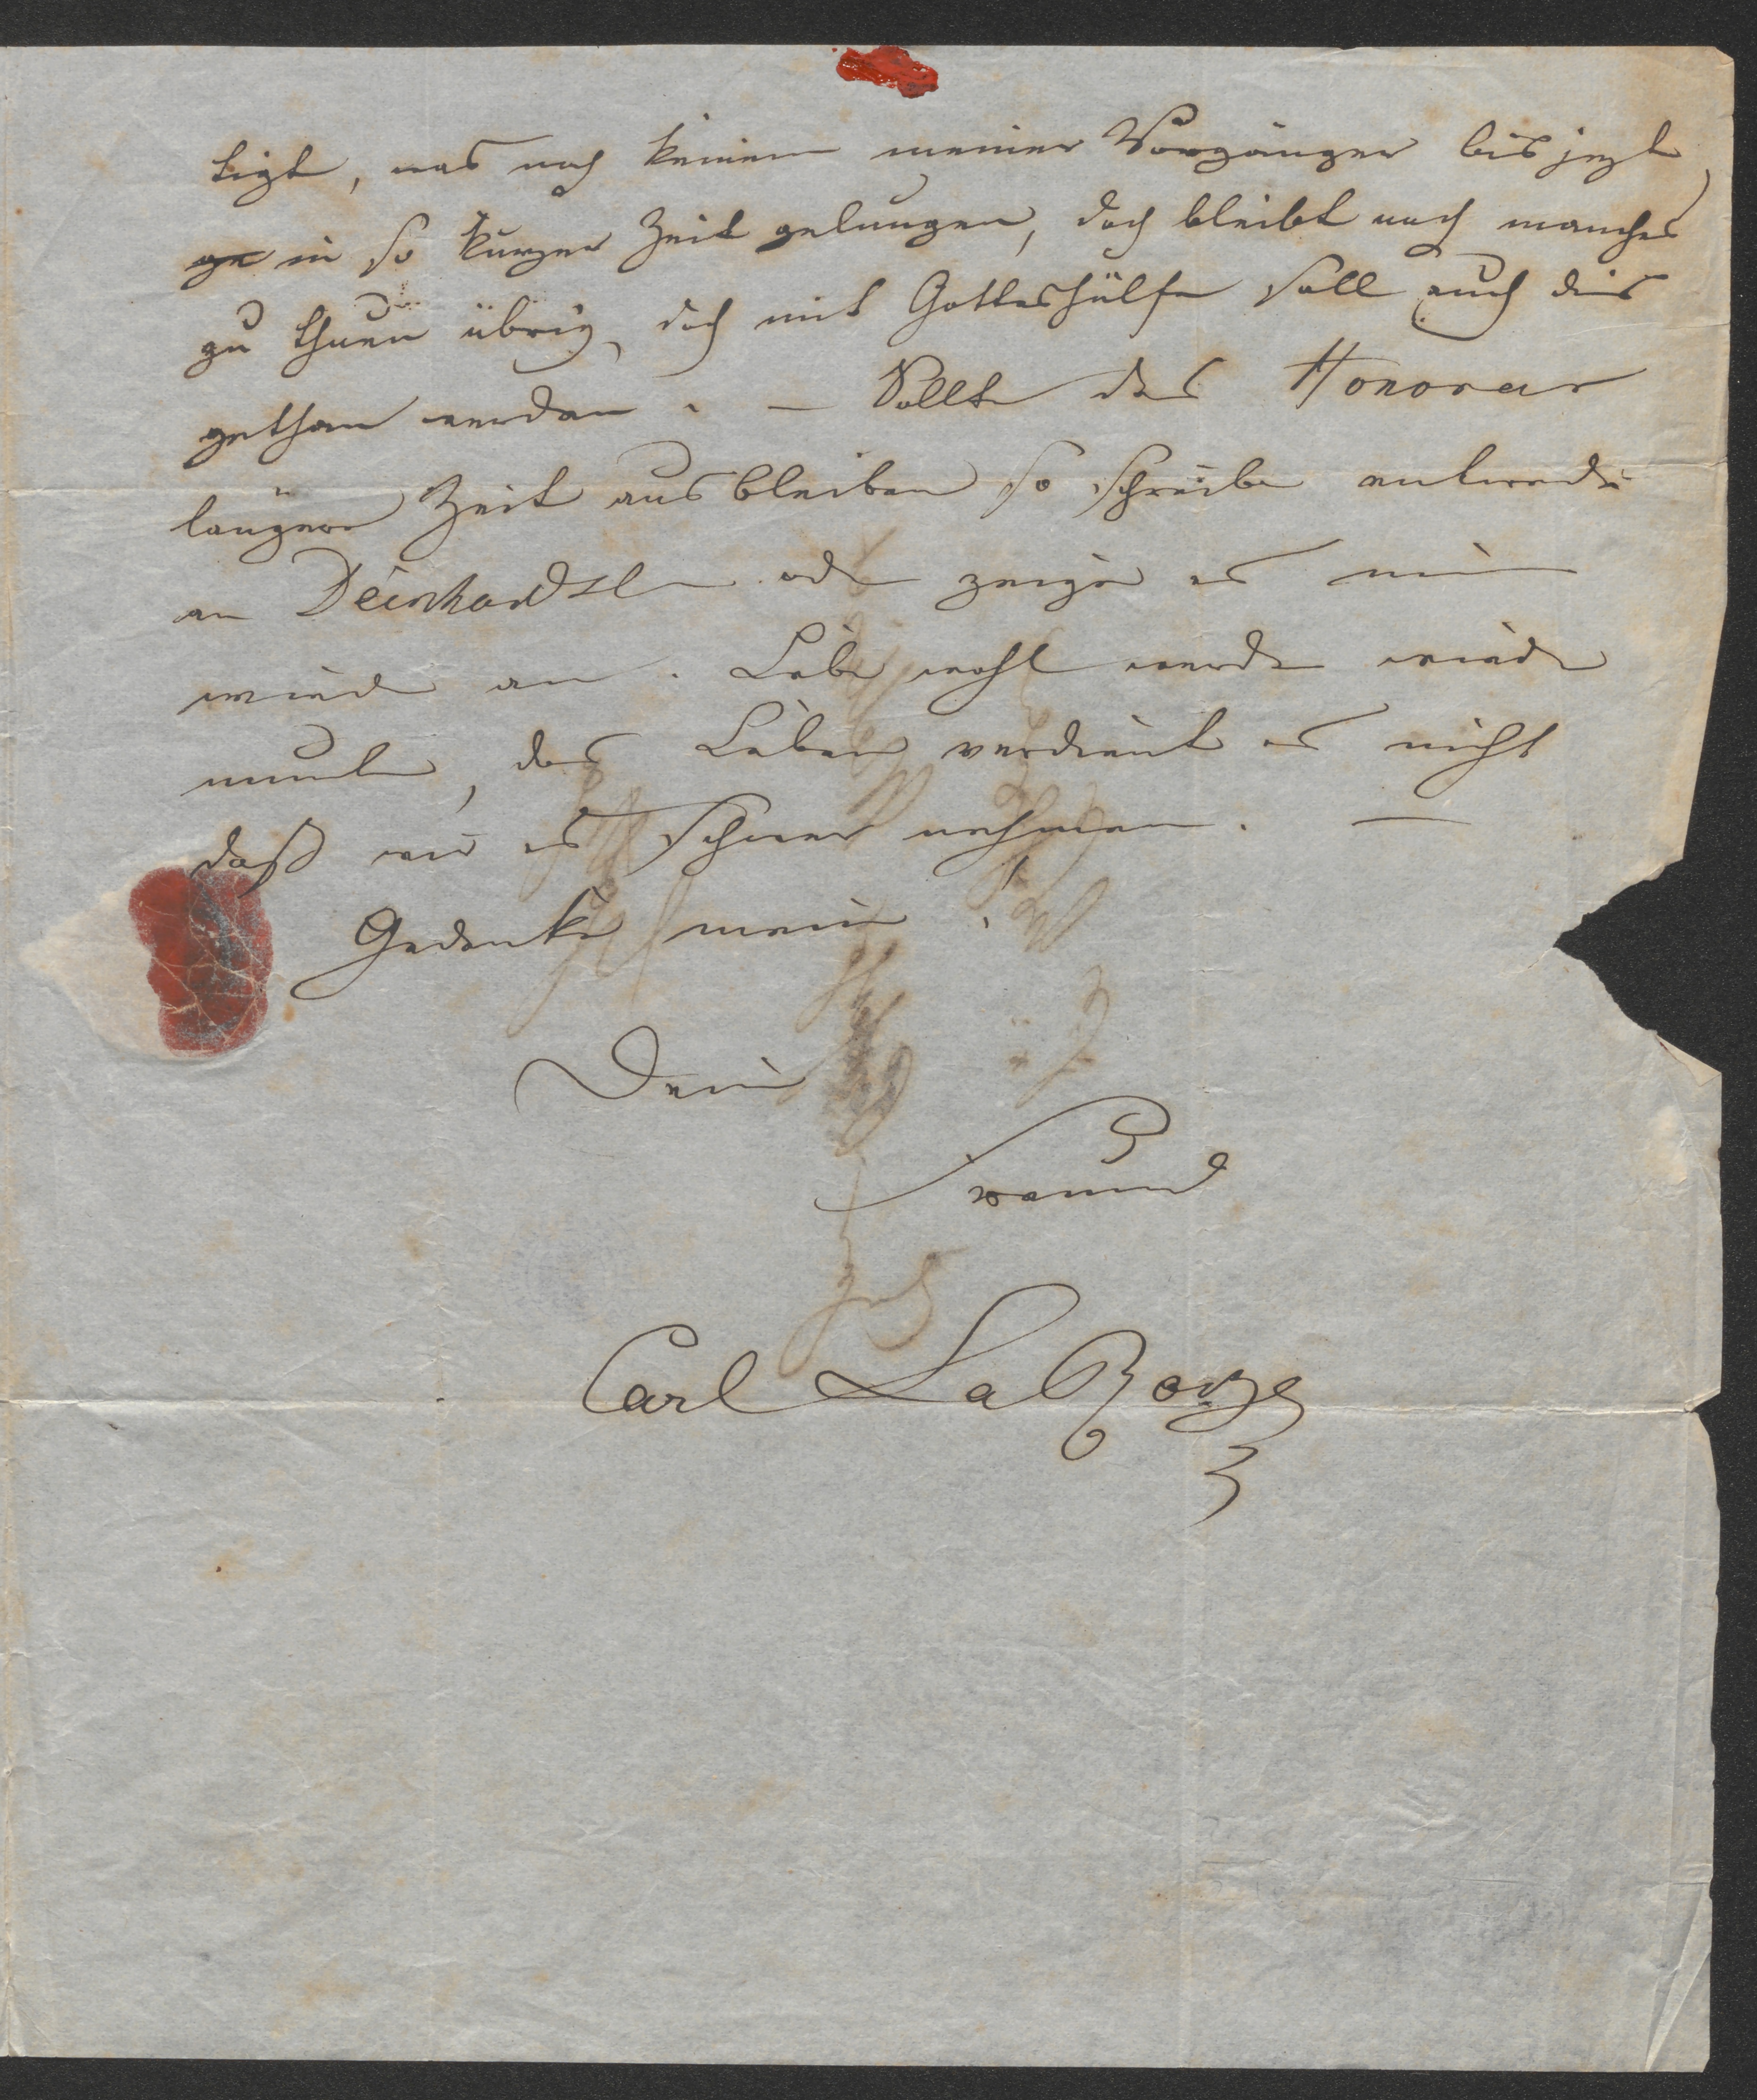 tigt, was noch keinem meiner Vorgänger bis jezt
in so kurzer Zeit gelungen, doch bleibt noch manches
zu thuen übrig, doch mit Gotteshülfe soll auch dies
gethan werden. – Sollte das Honorar
längere Zeit ausbleiben so schreibe entweder
an Deinhardstein oder zeige es mir
wieder an. Lebe wohl werde wieder
munter, das Leben verdient es nicht
daß wir es schwer nehmen. —
Gedenke mein.
Dein
Freund
Carl LaRoche